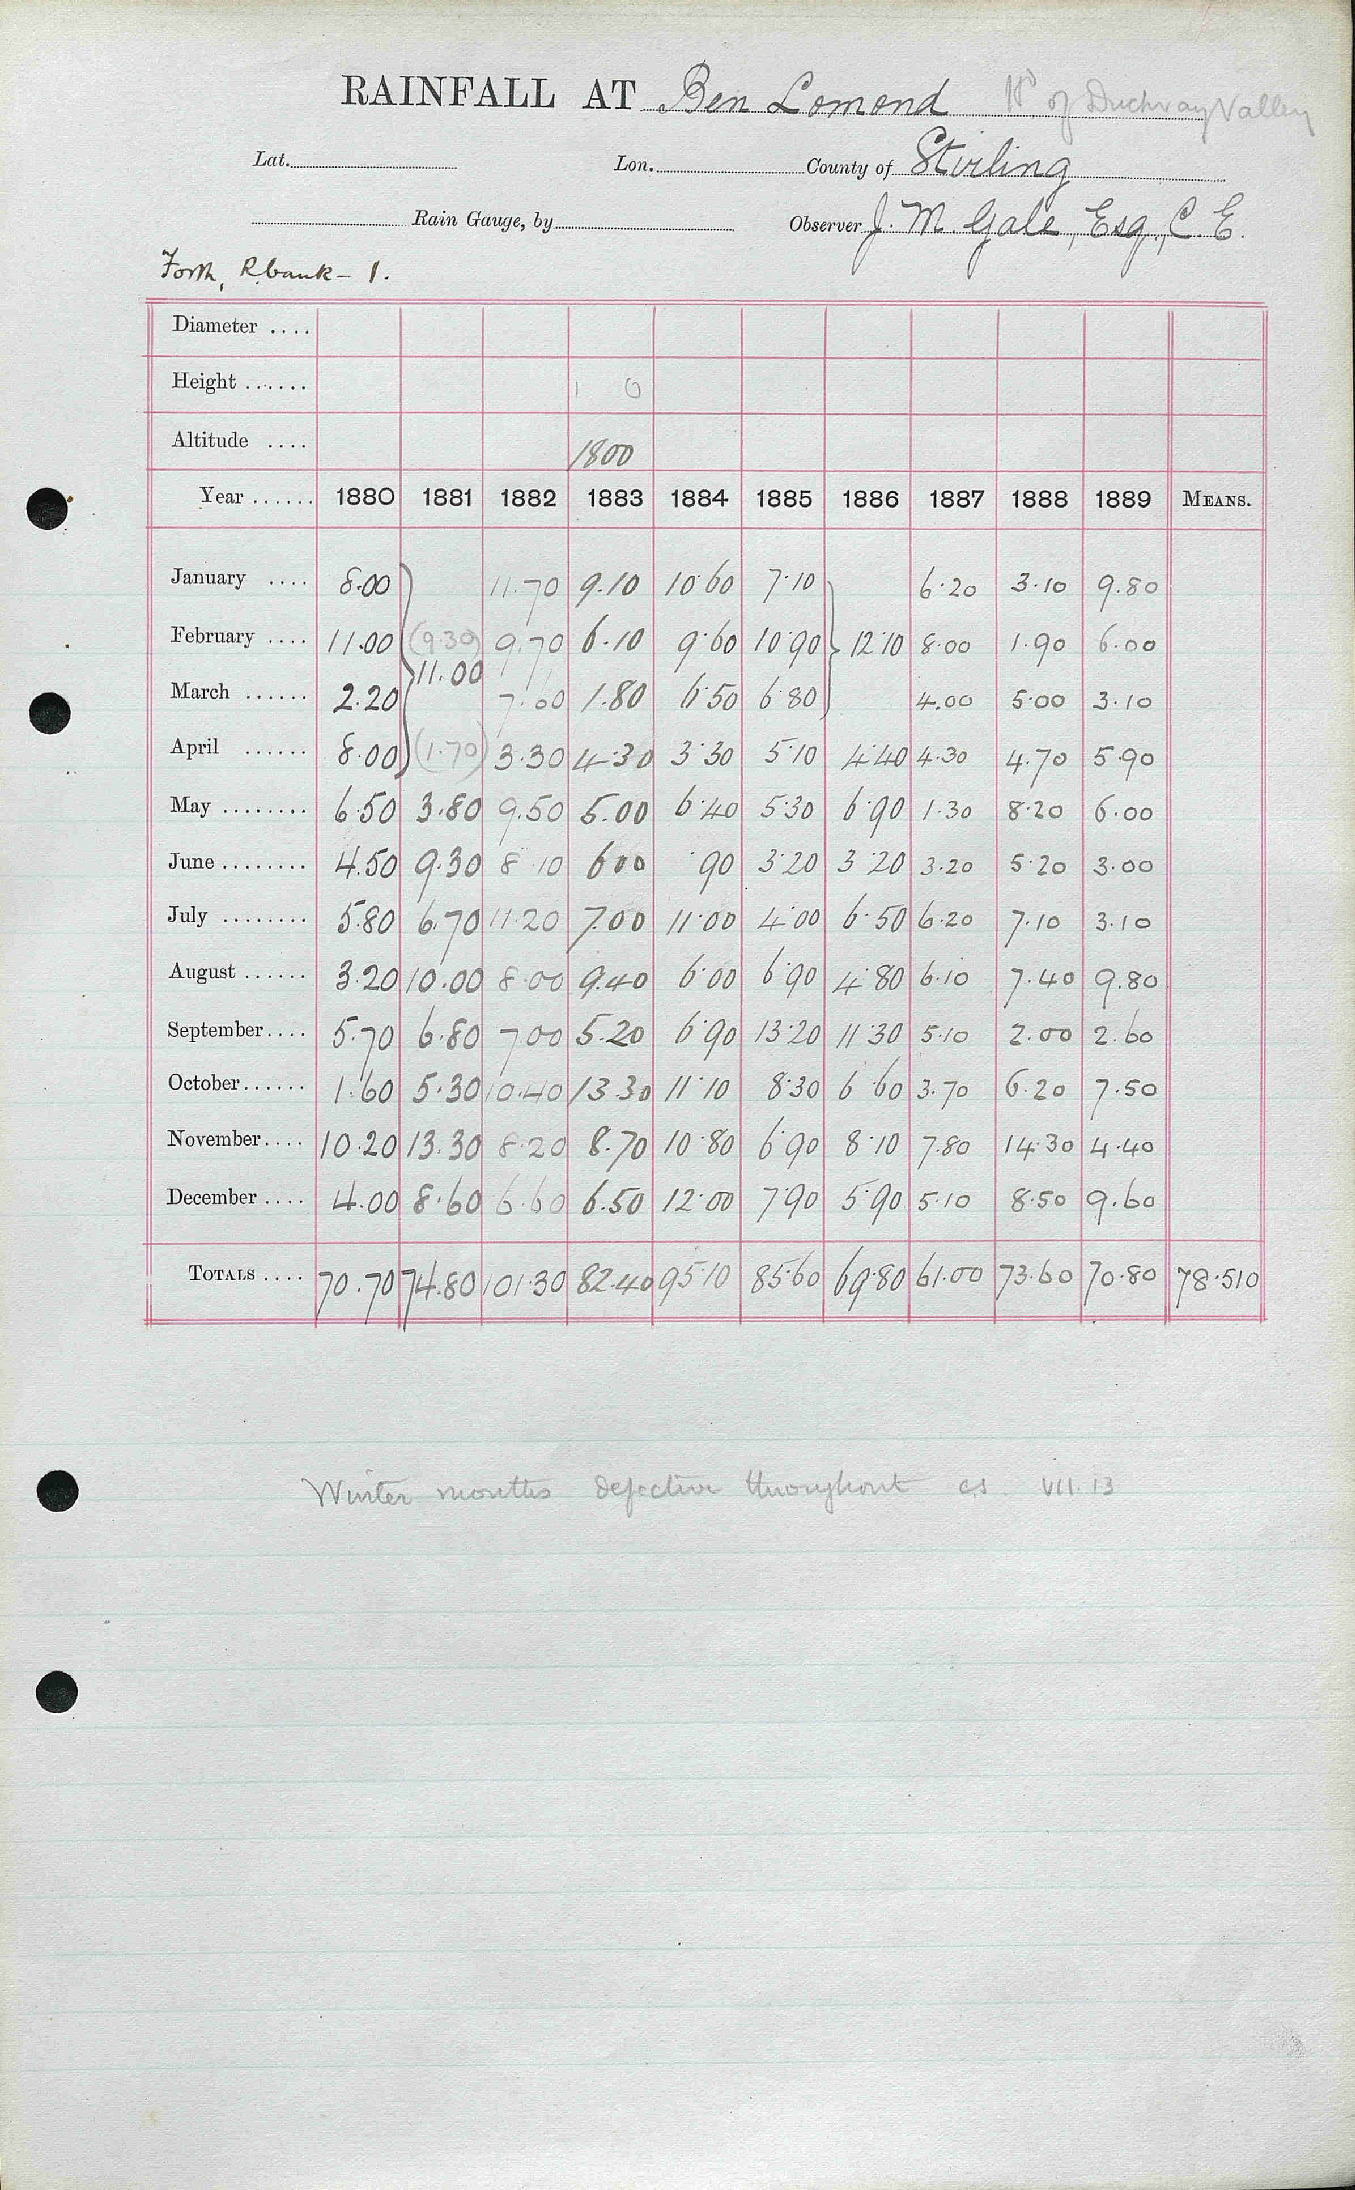 RAINFALL AT Ben Lomond Hd of Duchray Valley
Lat. Lon. County of Stirling
Rain Gauge, by Observer J. M. Gale, Esq., C. E.
Forth, R. bank - 1.
Diameter ....
Height ...... 1 0
Altitude .... 1800
Year ...... 1880 1881 1882 1883 1884 1885 1886 1887 1888 1889 MEANS.
January .... 8.00 11.70 9.10 10.60 7.10 6.20 3.10 9.80
February .... 11.00 (9.30) 9.70 6.10 9.60 10.90 12.10 8.00 1.90 6.00
11.00
March ...... 2.20 7.60 1.80 6.50 6.80 4.00 5.00 3.10
April ...... 8.00 (1.70) 3.30 4.30 3.30 5.10 4.40 4.30 4.70 5.90
May ........ 6.50 3.80 9.50 5.00 6.40 5.30 6.90 1.30 8.20 6.00
June ........ 4.50 9.30 8.10 6.00 .90 3.20 3.20 3.20 5.20 3.00
July ........ 5.80 6.70 11.20 7.00 11.00 4.00 6.50 6.20 7.10 3.10
August ...... 3.20 10.00 8.00 9.40 6.00 6.90 4.80 6.10 7.40 9.80
September.... 5.70 6.80 7.00 5.20 6.90 13.20 11.30 5.10 2.00 2.60
October...... 1.60 5.30 10.40 13.30 11.10 8.30 6.60 3.70 6.20 7.50
November.... 10.20 13.30 8.20 8.70 10.80 6.90 8.10 7.80 14.30 4.40
December .... 4.00 8.60 6.60 6.50 12.00 7.90 5.90 5.10 8.50 9.60
TOTALS .... 70.70 74.80 101.30 82.40 95.10 85.60 69.80 61.00 73.60 70.80 78.510
Winter months defective throughout cs. VII.13